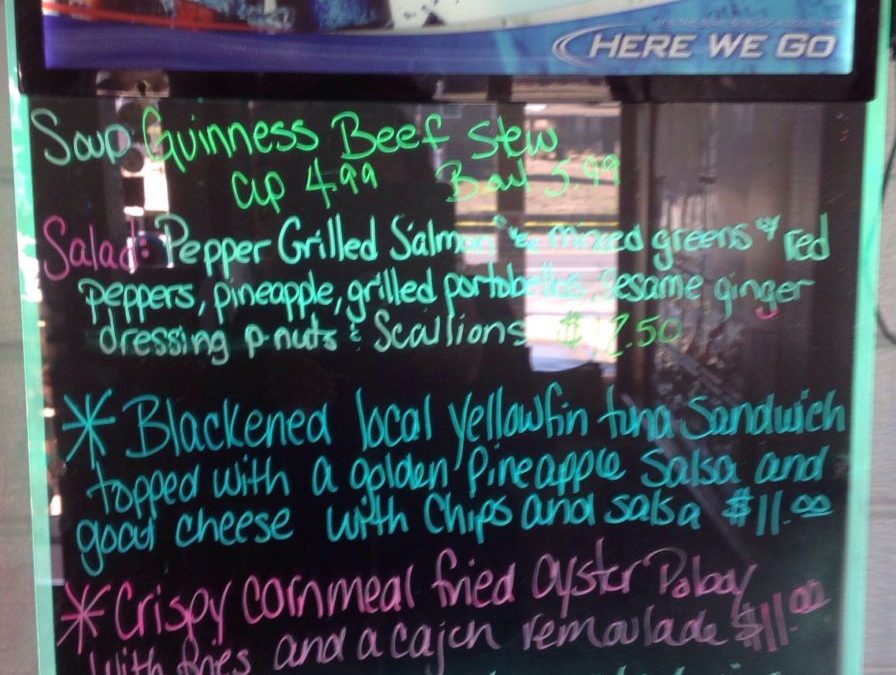 HERE WE GO
Soup: Guinness Beef Stew
cup 4.99 Bowl 5.99
Salad: Pepper Grilled Salmon mixed greens w/ red
peppers, pineapple, grilled portobellos, sesame ginger
dressing p-nuts & Scallions $12.50
* Blackened local yellowfin tuna Sandwich
topped with a golden Pineapple Salsa and
goat cheese with Chips and salsa $11.00
* Crispy cornmeal fried Oyster Poboy
with fries and a cajun remoulade $11.00